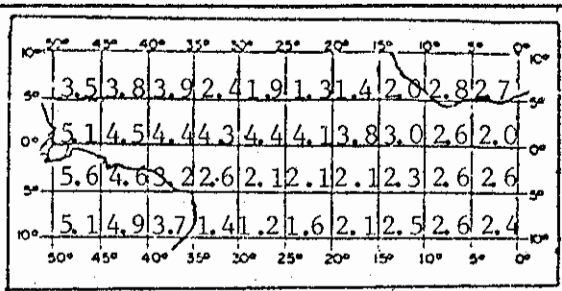 50° 45° 40° 35° 30° 25° 20° 15° 10° 5° 0°
10° 10°
3.5 3.8 3.9 2.4 1.9 1.3 1.4 2.0 2.8 2.7
5° 5°
5.1 4.5 4.4 4.3 4.4 4.1 3.8 3.0 2.6 2.0
0° 0°
5.6 4.6 3.2 2.6 2.1 2.1 2.1 2.3 2.6 2.6
5° 5°
5.1 4.9 3.7 1.4 1.2 1.6 2.1 2.5 2.6 2.4
10° 10°
50° 45° 40° 35° 30° 25° 20° 15° 10° 5° 0°